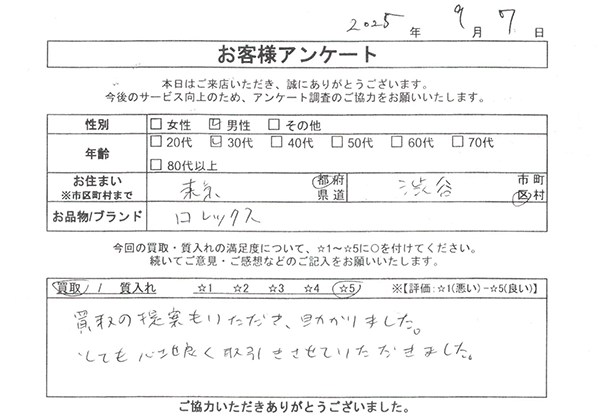 2025年 9月 7日
お客様アンケート
本日はご来店いただき、誠にありがとうございます。
今後のサービス向上のため、アンケート調査のご協力をお願いいたします。
性別 □女性 ☑男性 □その他
年齢 □20代 ☑30代 □40代 □50代 □60代 □70代
□80代以上
お住まい
※市区町村まで
東京 都府県道 渋谷 市町区村
お品物/ブランド ロレックス
今回の買取・質入れの満足度について、☆1～☆5に○を付けてください。
続いてご意見・ご感想などのご記入をお願いいたします。
買取 / 質入れ ☆1 ☆2 ☆3 ☆4 ☆5 ※【評価:☆1(悪い)-☆5(良い)】
買取の提案もいただき、助かりました。
とても心地良く取引きさせていただきました。
ご協力いただきありがとうございました。